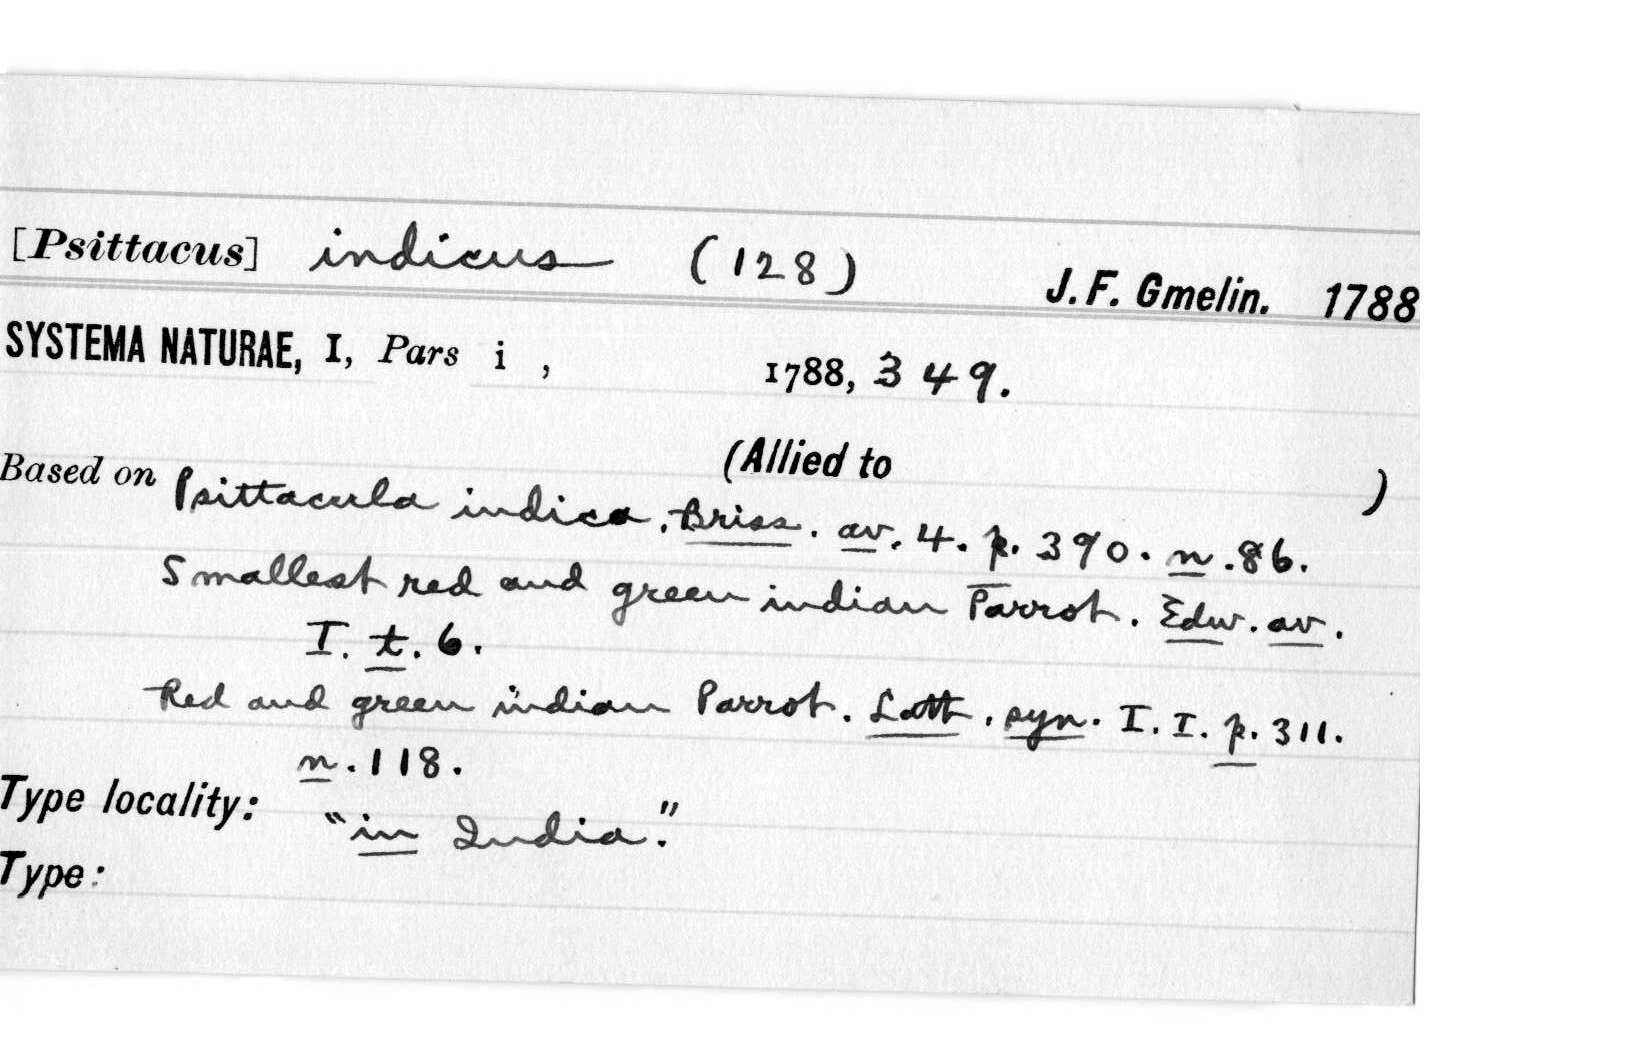 [Psittacus] indicus (128) J. F. Gmelin. 1788
SYSTEMA NATURAE, I, Pars i, 1788, 349.
(Allied to )
Based on Psittacula indica. Briss. av. 4. p. 390. n. 86.
Smallest red and green indian Parrot. Edw. av.
I. t. 6.
Red and green indian Parrot. Lath. syn. I. I. p. 311.
n. 118.
Type locality: "in India."
Type: